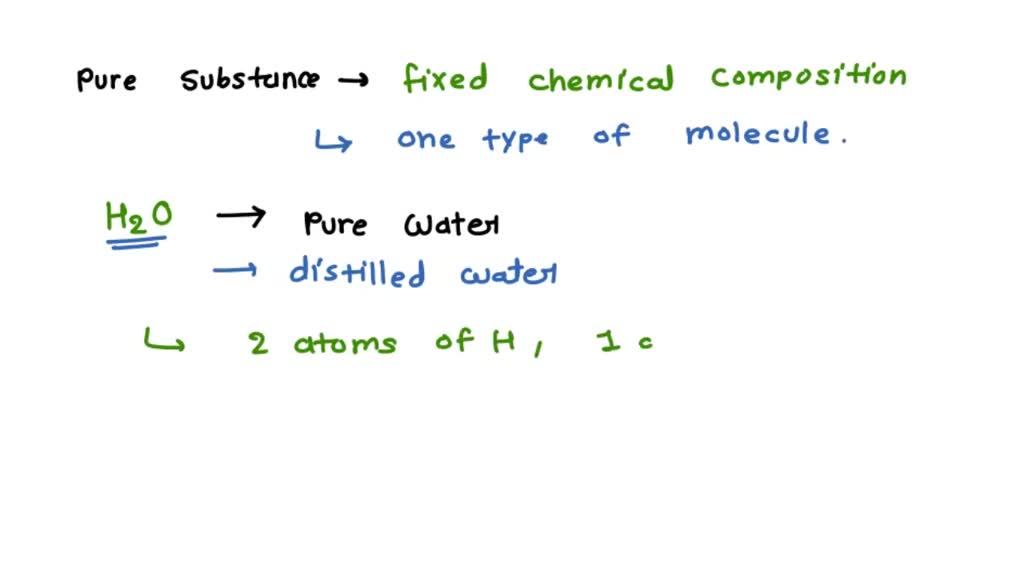 Pure Substance → fixed chemical composition
↳ one type of molecule.
H₂O → Pure water
→ distilled water
↳ 2 atoms of H, 1